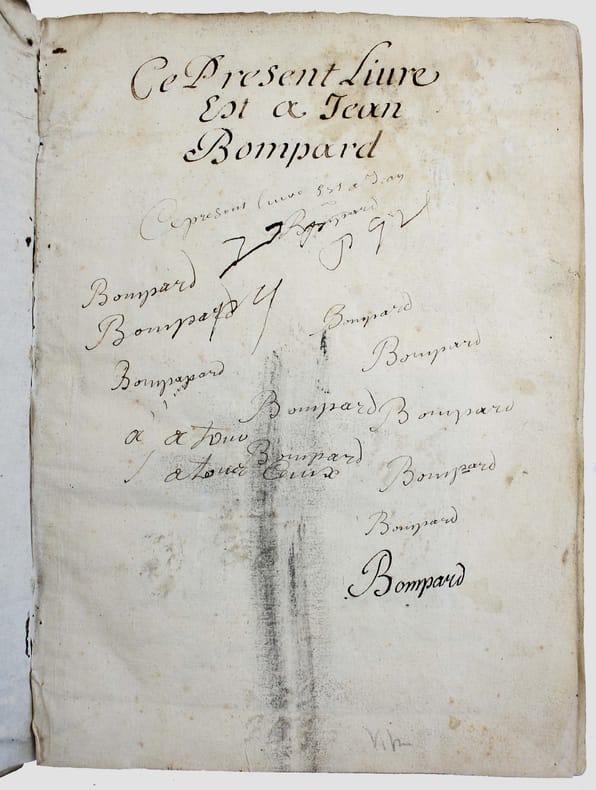 Ce Present Liure
Est a Jean
Bompard
Ce present liure Est a Jean
Bompard
Bompard
Bompard
Bompard
Bompard
Bompapard
Bompard
Bompard
a a tous
Bompard
a tous Ceux
Bompard
Bompard
Bompard